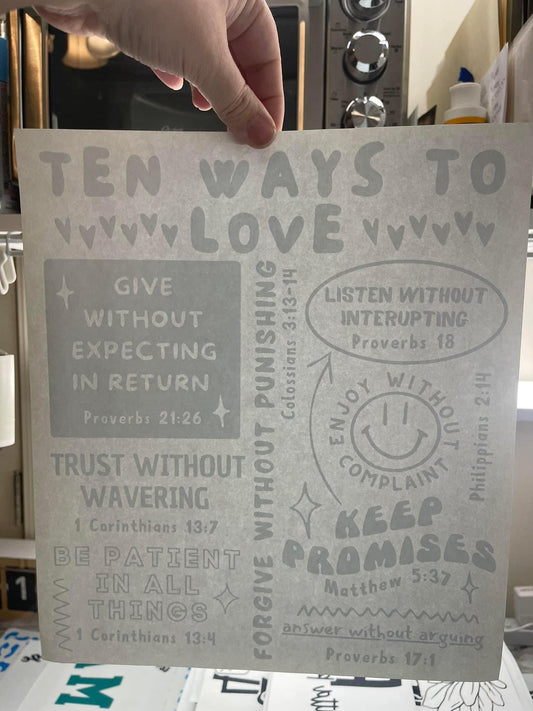 TEN WAYS TO
LOVE
GIVE
WITHOUT
EXPECTING
IN RETURN
Proverbs 21:26
TRUST WITHOUT
WAVERING
1 Corinthians 13:7
BE PATIENT
IN ALL
THINGS
1 Corinthians 13:4
FORGIVE WITHOUT PUNISHING
Colossians 3:13-14
LISTEN WITHOUT
INTERUPTING
Proverbs 18
ENJOY WITHOUT
COMPLAINT
Philippians 2:14
KEEP
PROMISES
Matthew 5:37
answer without arguing
Proverbs 17:1
1
M